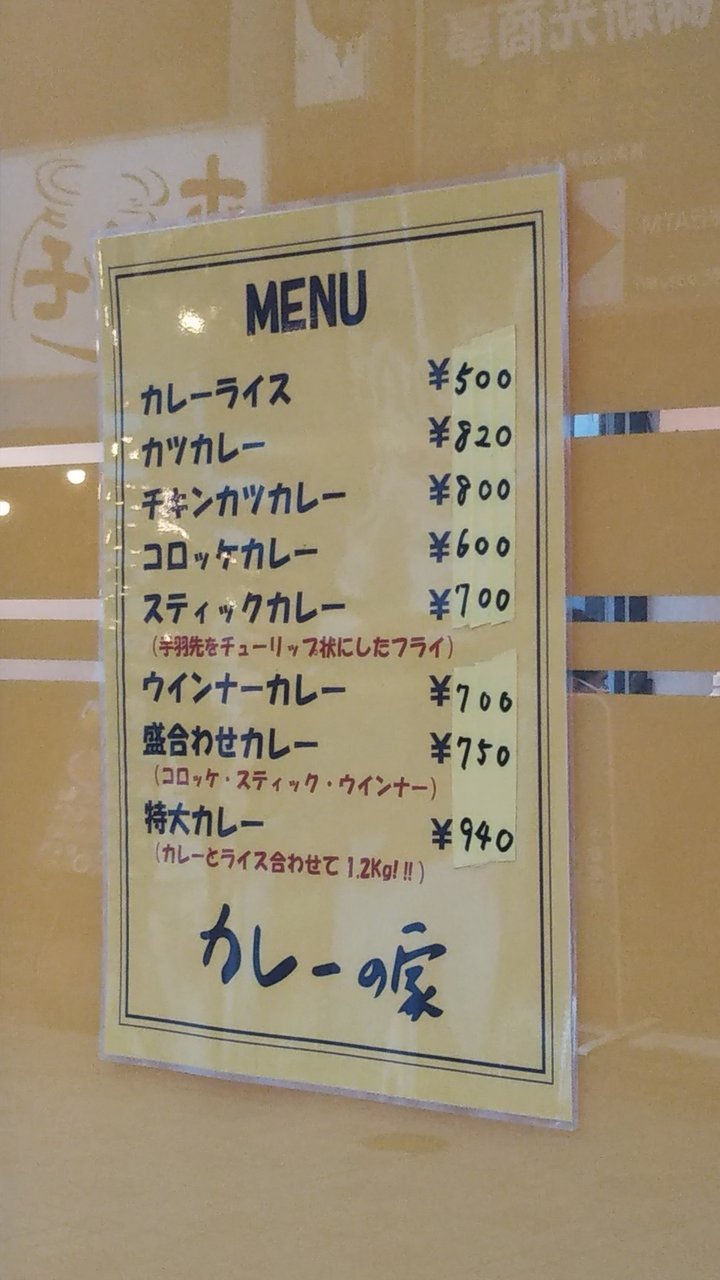 MENU
カレーライス ¥500
カツカレー ¥820
チキンカツカレー ¥800
コロッケカレー ¥600
スティックカレー ¥700
(手羽先をチューリップ状にしたフライ)
ウインナーカレー ¥700
盛合わせカレー ¥750
(コロッケ・スティック・ウインナー)
特大カレー ¥940
(カレーとライス合わせて 1.2Kg!!!)
カレーの家
新光商事